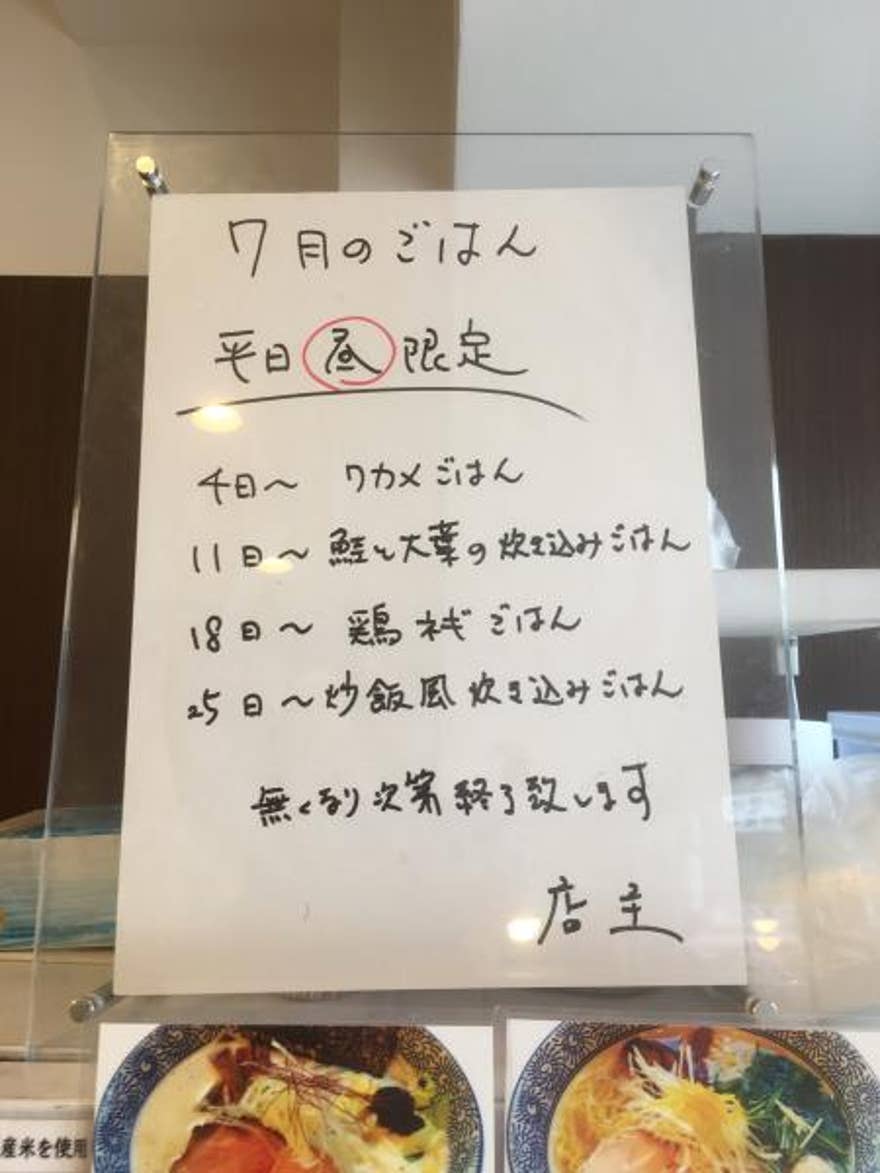 7月のごはん
平日昼限定
4日〜 ワカメごはん
11日〜鮭と大葉の炊き込みごはん
18日〜 鶏ネギごはん
25日〜炒飯風炊き込みごはん
無くなり次第終了致します
店主
産米を使用